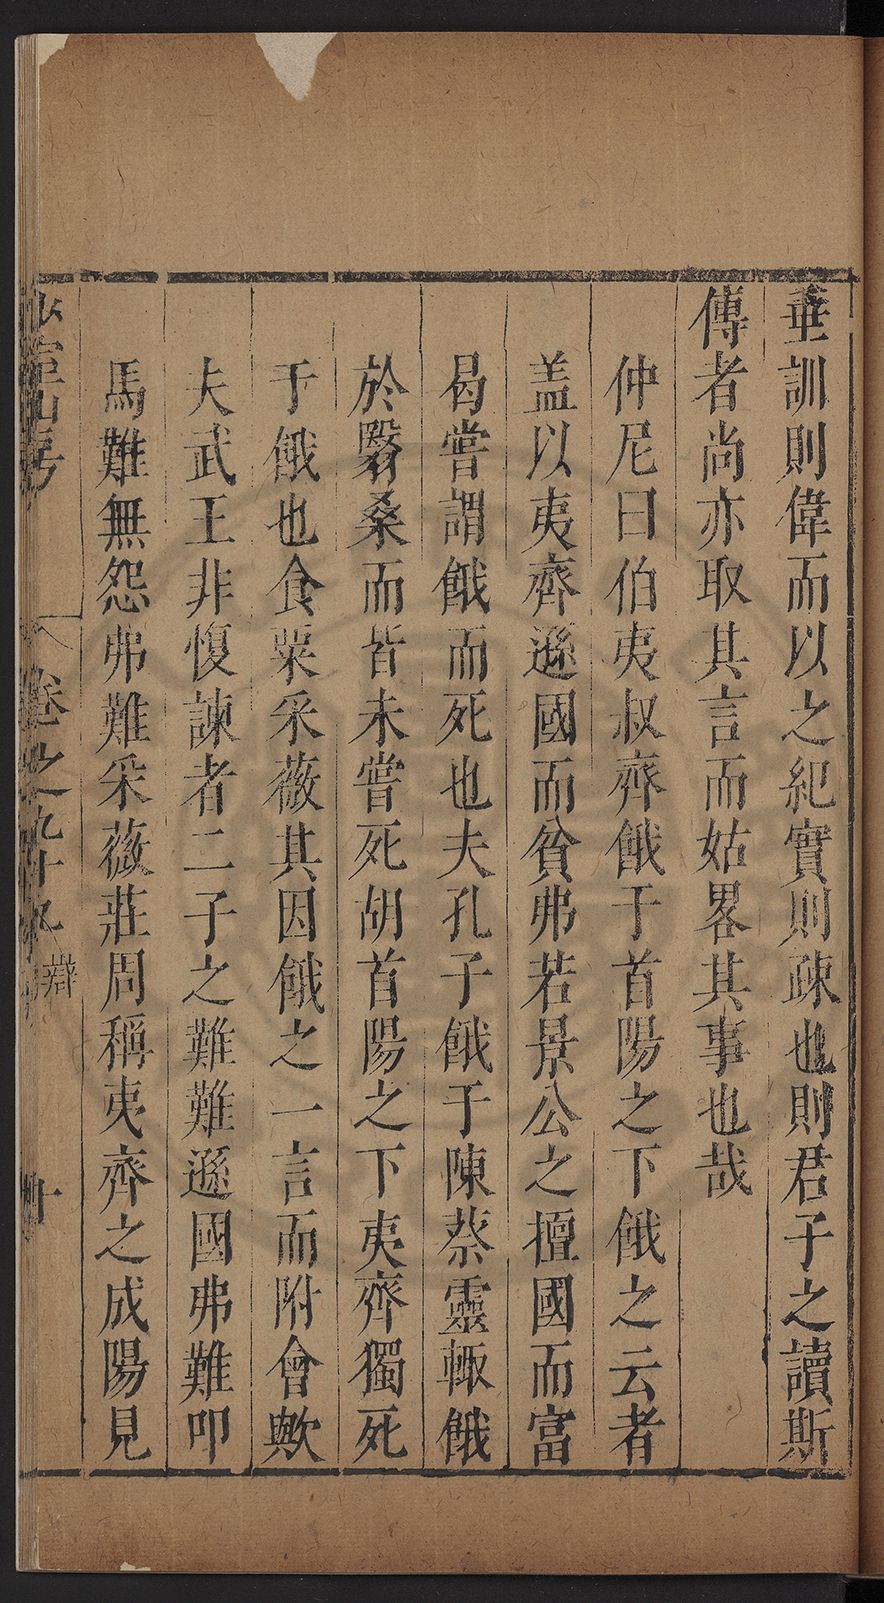 垂訓則偉而以之紀實則疎也則君子之讀斯
傳者尚亦取其言而姑畧其事也哉
仲尼曰伯夷叔齊餓于首陽之下餓之云者
盖以夷齊遜國而貧弗若景公之擅國而富
曷嘗謂餓而死也夫孔子餓于陳蔡靈輙餓
於翳桑而皆未嘗死胡首陽之下夷齊獨死
于餓也食粟采薇其因餓之一言而附會歟
夫武王非愎諫者二子之難難遜國弗難叩
馬難無怨弗難采薇莊周稱夷齊之成陽見
卷之九十九 辯 十